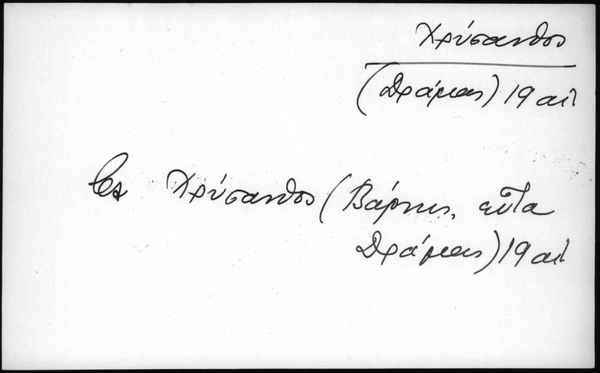 Χρύσανθος
(Δράμας) 19 αἰ
Χρύσανθος (Βάρνης, εἶτα
Δράμας) 19 αἰ